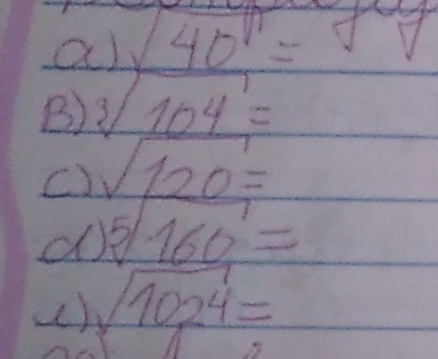 a) √40 =
B) ³√104 =
c) √120 =
d) ⁵√160 =
e) √1024 =